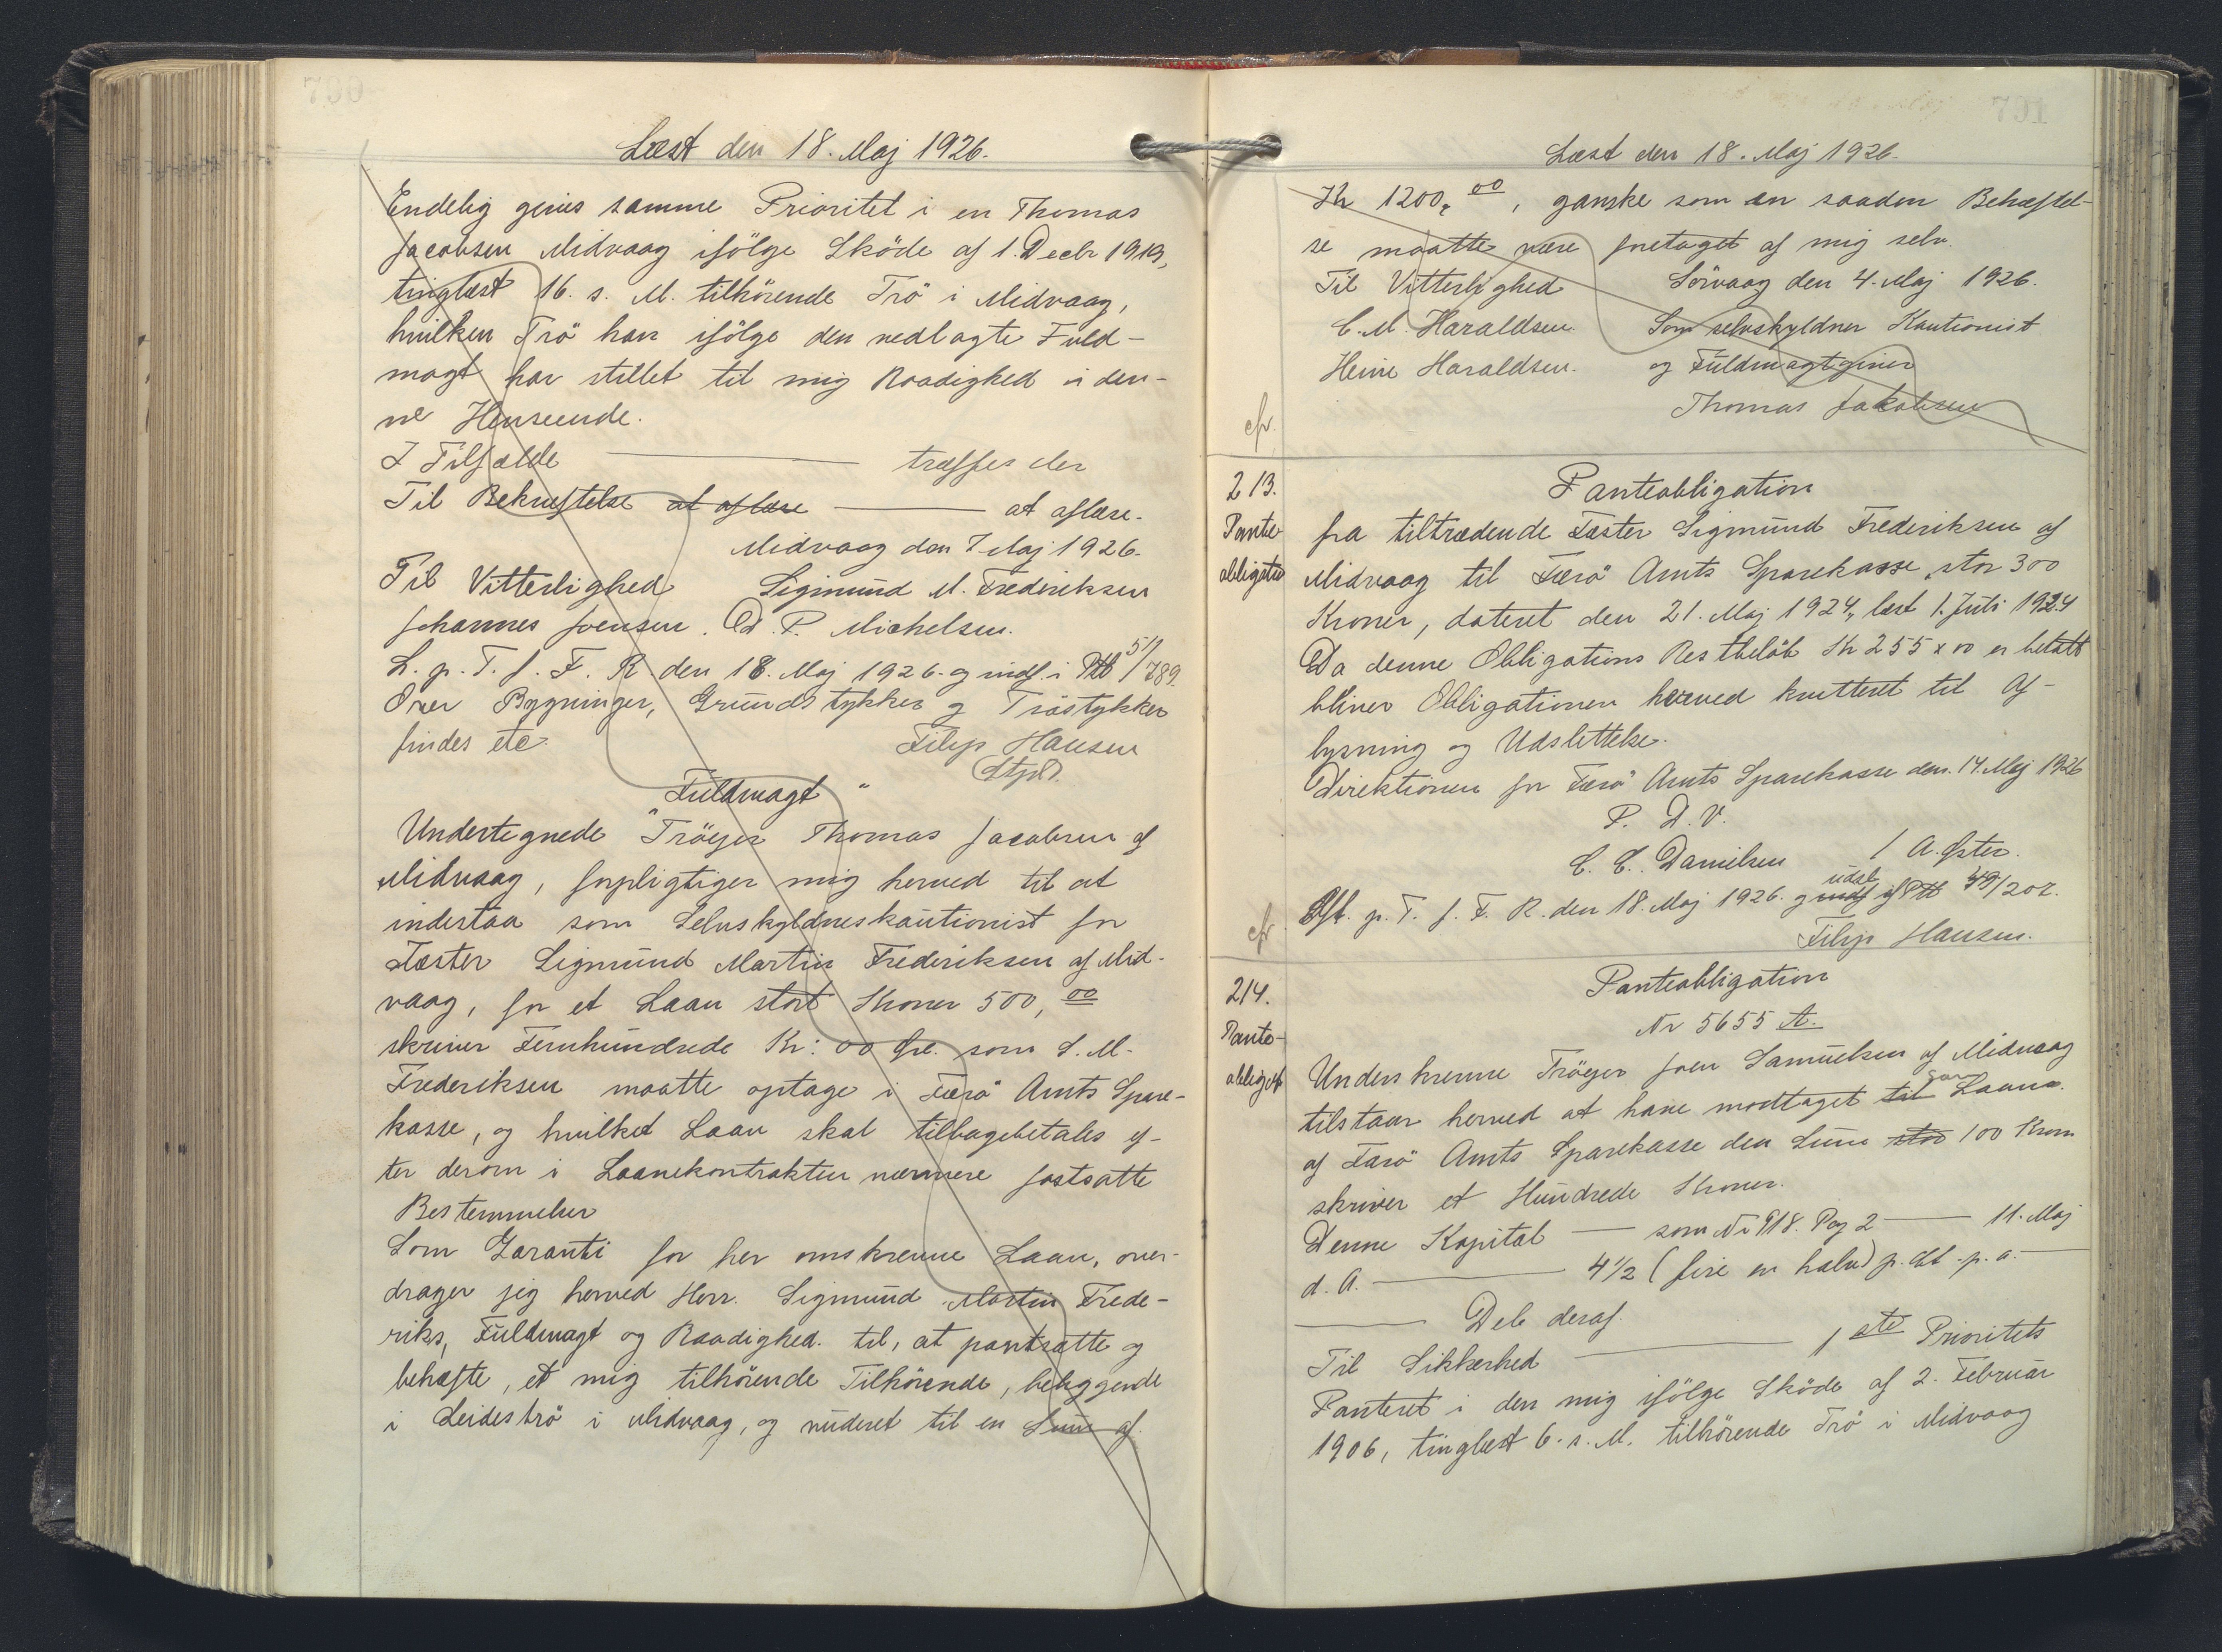 790
Læst den 18. Maj 1926.
Endelig gives samme Prioritet i en Thomas
Jacobsen Midvaag ifölge Sköde af 1. Decbr 1919,
tinglæst 16. s. M. tilhörende Trö i Midvaag,
hvilken Trö han ifölge den vedlagte Fuld-
magt har stillet til mig Raadighed i den-
ne Henseende.
I Tilfælde ——— træffes der
Til Bekræftelse at aflæse ——— at aflæse.
Midvaag den 7 Maj 1926.
Til Vitterlighed Sigmund M. Frederiksen
Johannes Joensen. Od. P. Michelsen.
L. p. T. f. F. R. den 18. Maj 1926. og indf. i Ptb 51/789.
Over Bygninger, Grundstykker og Tröstykker
findes etc. Filip Hansen
Stfd.
"Fuldmagt"
Undertegnede Tröejer Thomas Jacobsen af
Midvaag, forpligtiger mig herved til at
indestaa som Selvskyldneskautionist for
Fæster Sigmund Martin Frederiksen af Mid-
vaag, for et Laan stort Kroner 500,00
skriver Femhundrede Kr: 00 Øre. som S. M.
Frederiksen maatte optage i Færö Amts Spare-
kasse, og hvilket Laan skal tilbagebetales ef-
ter derom i Laanekontrakten nærmere fastsatte
Bestemmelser
Som Garanti for her omskrevne Laan, over-
drager jeg herved Herr. Sigmund Martin Frede-
riks, Fuldmagt og Raadighed. til, at pantsætte og
behæfte, et mig tilhörende Tilhörende, beliggende
i Leideströ i Midvaag, og vuderet til en Sum af
791
Læst den 18. Maj 1926.
Kr 1200,00, ganske som en saadan Behæftel-
se maatte være foretaget af mig selv.
Til Vitterlighed Sörvaag den 4. Maj 1926.
C. M. Haraldsen. Som selvskyldner Kautionist
Heine Haraldsen. og Fuldmagtgiver
Thomas Jakobsen
cfr.
213. Panteobligation
Pante-
obligatio
fra tiltrædende Fæster Sigmund Frederiksen af
Midvaag til Færö Amts Sparekasse, stor 300
Kroner, dateret den 21. Maj 1924, læst 1. Juli 1924
Da denne Obligations Restbelöb Kr 255 x 00 er betalt
bliver Obligationen herved kvitteret til Af-
lysning og Udslettelse.
Direktionen for Færö Amts Sparekasse den. 14. Maj 1926
P. D. V.
C. C. Danielsen / A. Øster.
Afl. p. T. f. F. R. den 18. Maj 1926. og indf udsl af Ptb 49/207.
cfr. Filip Hansen.
214. Panteobligation
Nr 5655 A.
Pante-
obligat
Underskrevne Tröejer Joen Samuelsen af Midvaag
tilstaar herved at have modtaget til som Laan
af Færö Amts Sparekasse den Sum stor 100 Kron
skriver et Hundrede Kroner.
Denne Kapital — som Nr 918. Pag 2 — 11. Maj
d. A. ——— 4 1/2 (fire en halv) p. Ct. p. a. —
——— Dele deraf.
Til Sikkerhed ——— 1ste Prioritets
Panteret i den mig ifölge Sköde af 2. Februar
1906, tinglæst 6. s. M. tilhörende Trö i Midvaag